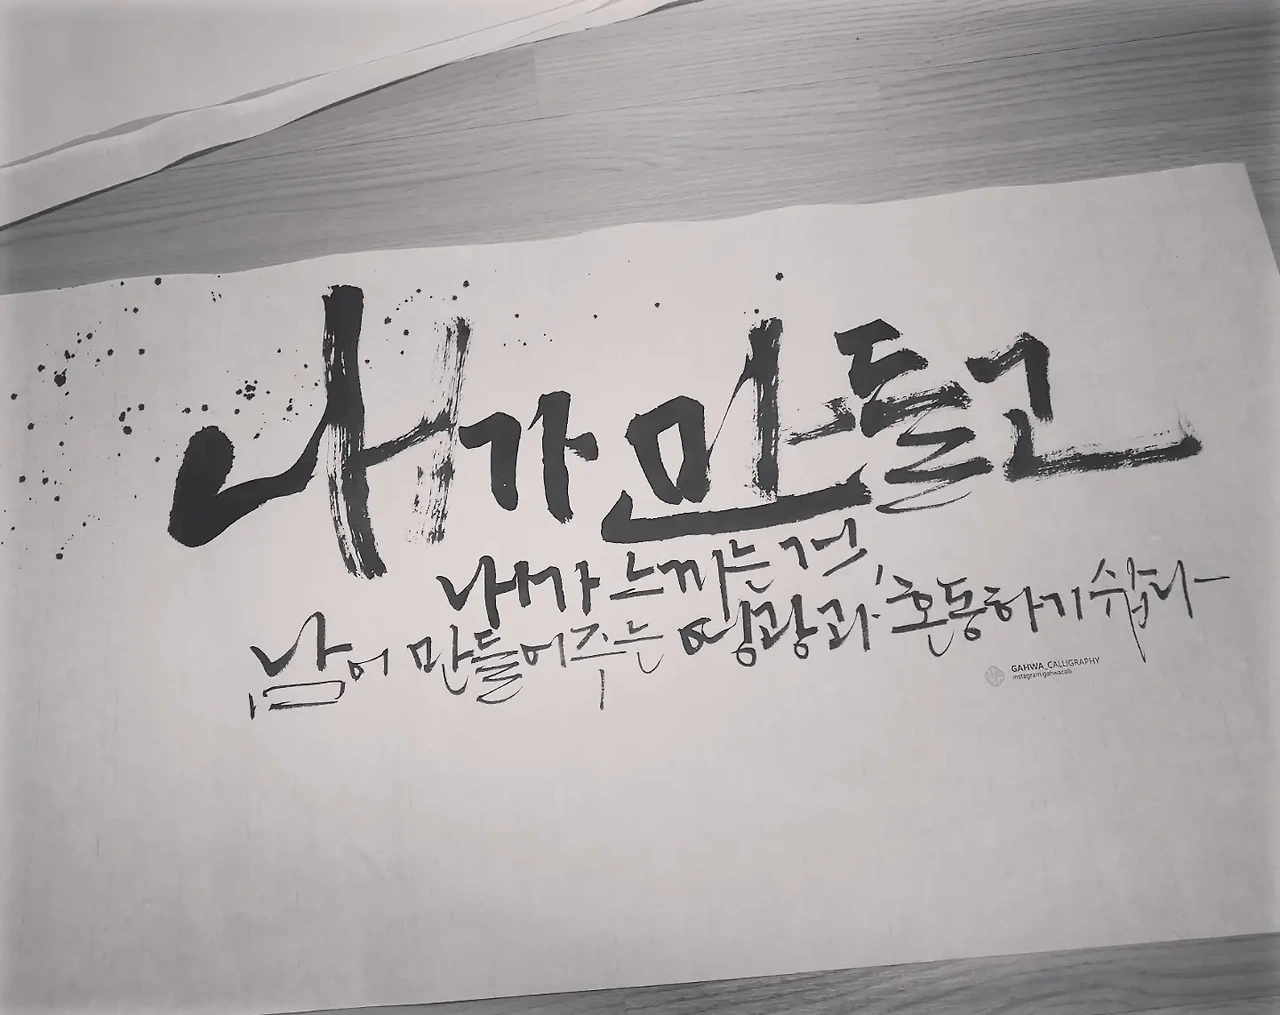 내가 만들고
내가 느끼는 것,
남이 만들어주는 영광과 혼동하기 쉽다
GAHWA_CALLIGRAPHY
instagram:gahwacalli